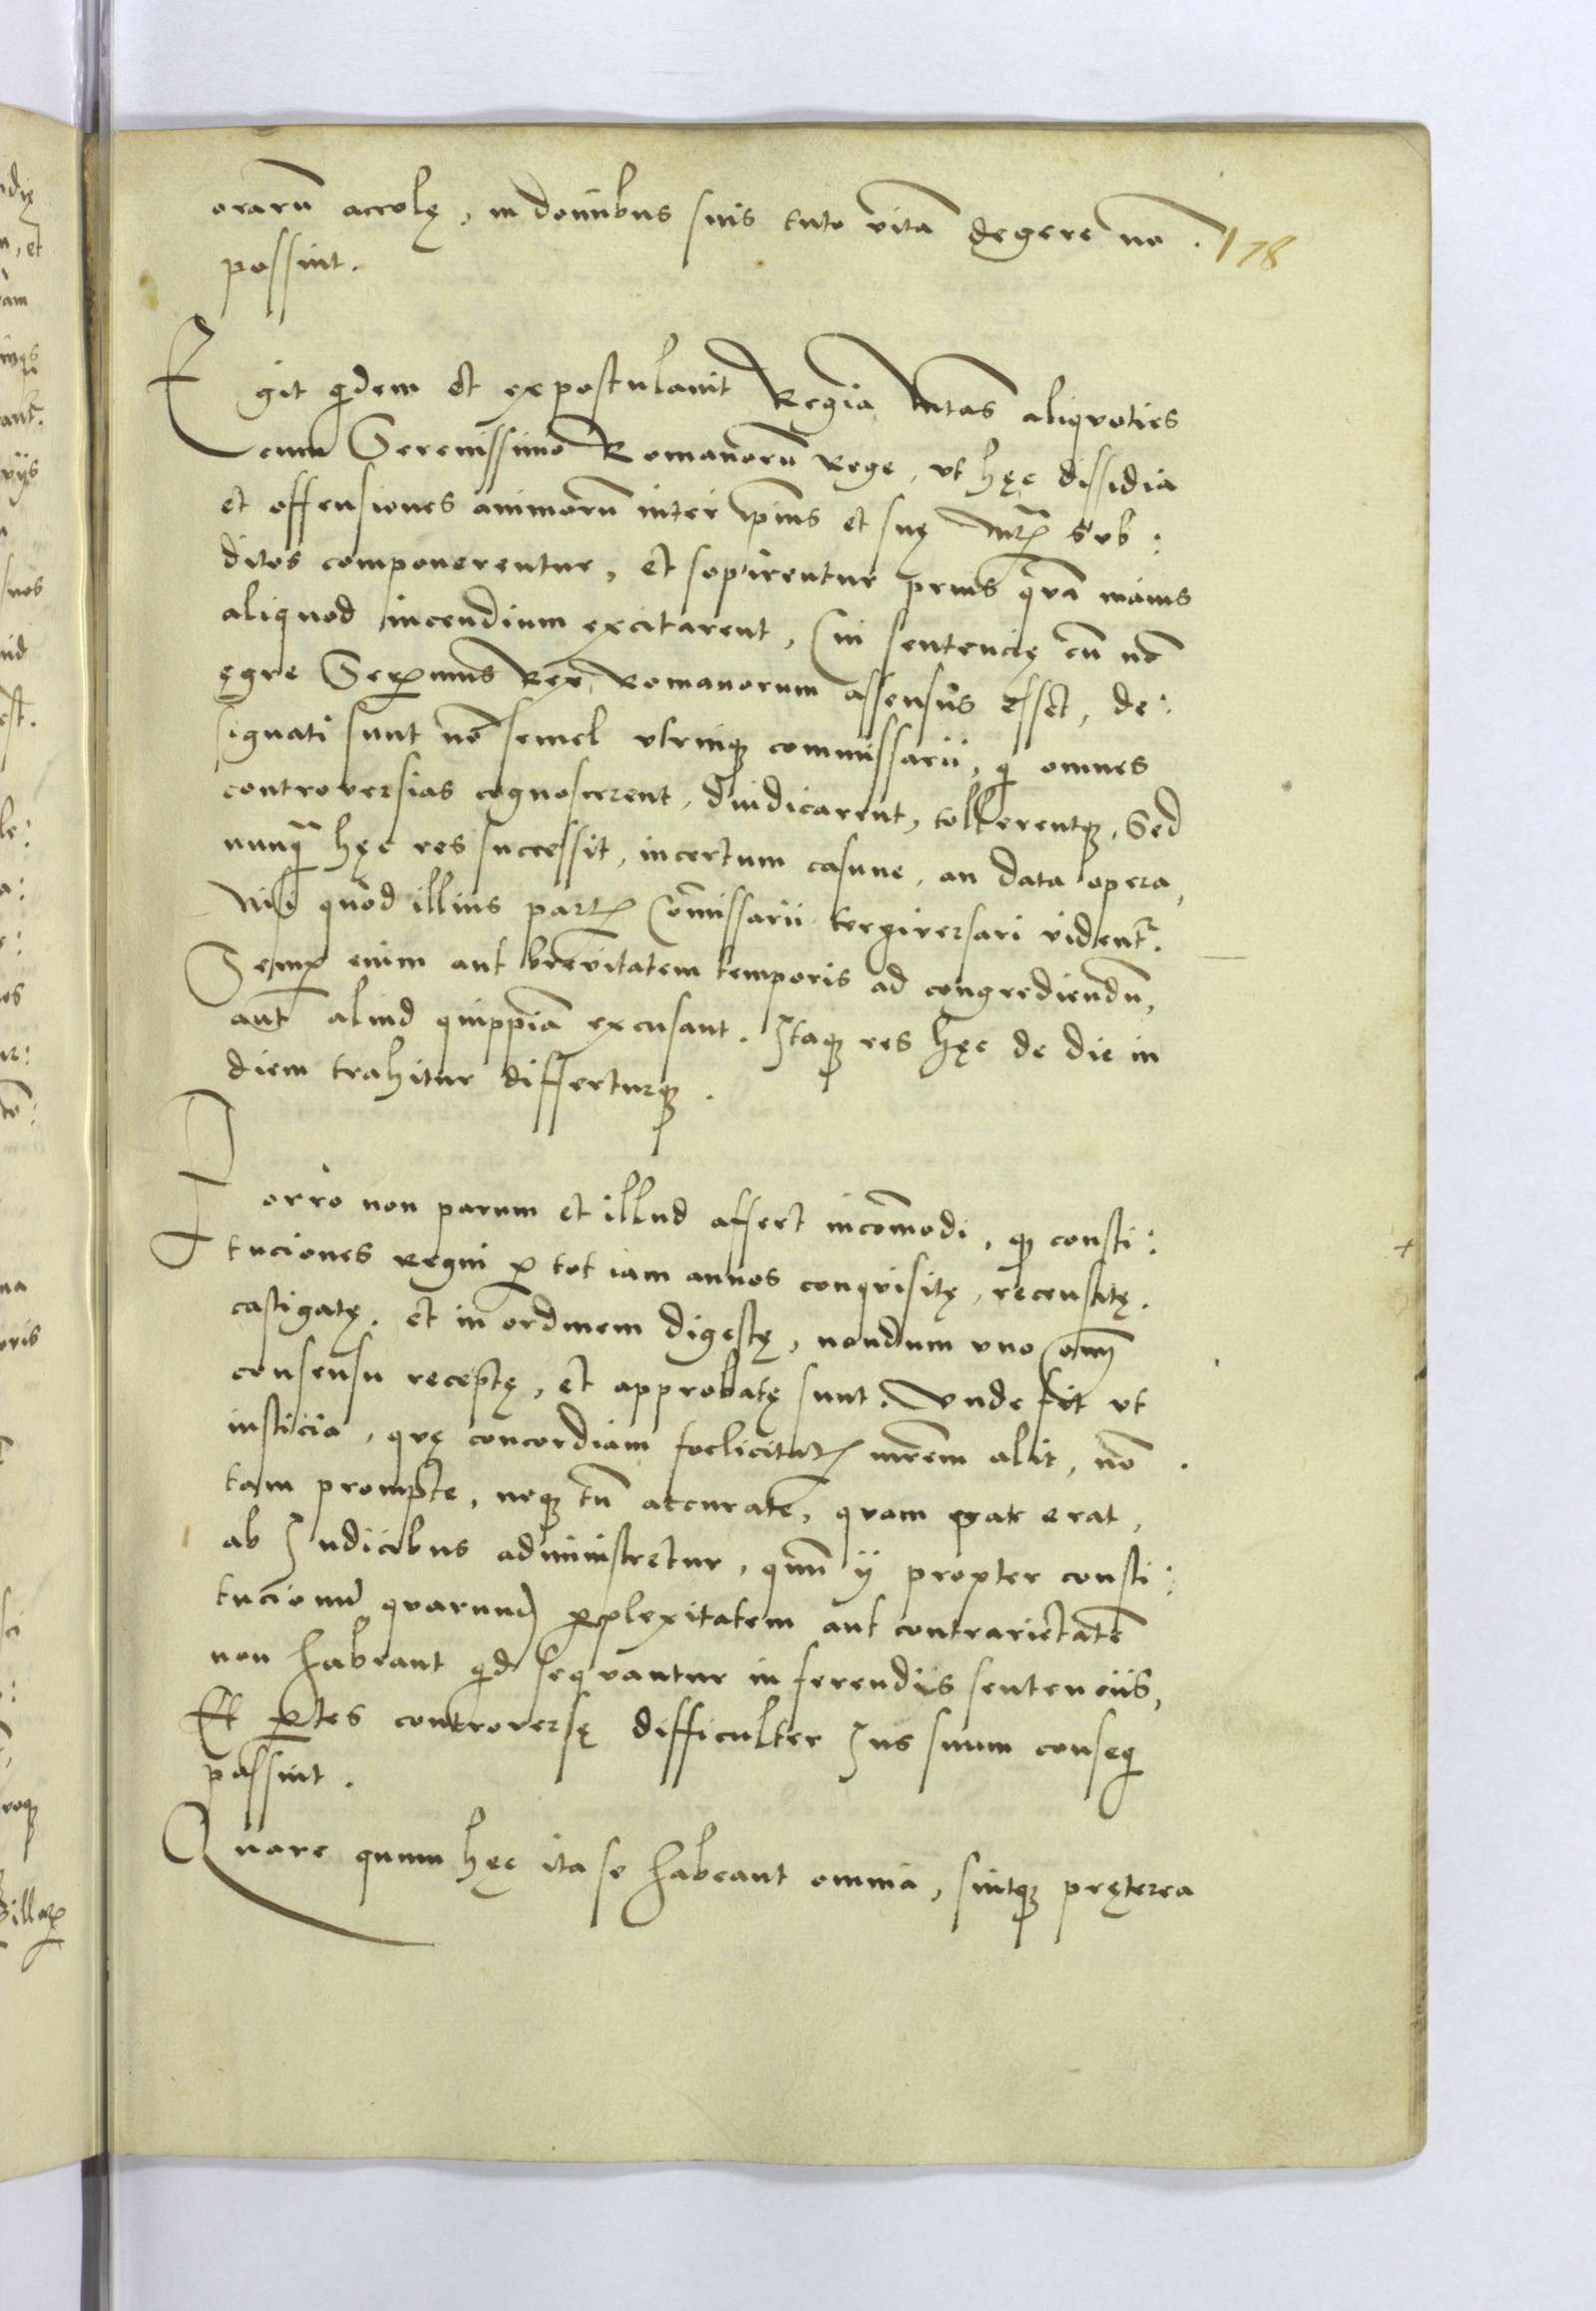 orarū accolę, in domibus suis tuto vitā degere nō
possint.
178
Egit qdem et expostulavit Regia Mtas aliqvoties
cum Serenissimo Romanorū Rege, vt hęc dissidia
et offensiones animorū inter ipius et suę Mtis svb:
ditos componerentur, et sopirentur prius qvā maius
aliquod incendium excitarent, Cui sentencię cū nō
ęgre Serenimus Rex Romanorum assensus esset, de:
signati sunt nō semel vtrinqz commissarii, qi omnes
controversias cognoscerent, diiudicarent, tollerentqz, Sed
nunqā hęc res successit, incertum casune, an data opera,
Nisi quod illius partis Cōmissarii tergiversari videntr.
Semp enim aut brevitatem temporis ad congrediendū,
aut aliud quippiā excusant. Itaqz res hęc de die in
diem trahitur differturqz.
Porro non parum et illud affert incōmodi, qz consti:
tuciones Regni p tot iam annos conqvisitę, recensitę.
castigatę. et in ordinem digestę, nondum vno omī
consensu receptę, et approbatę sunt. Vnde fit vt
iusticia, qvę concordiam foelicitatis mrēm alit, nō
tam prompte, neqz tū accurate, qvam par erat,
ab Iudicibus administretur, quū ij propter consti:
tucionū qvarund pplexitatem aut contrarietatē
non habeant qid seqvantur in ferendis sentenciis,
Et ptes controversę difficulter Ius suum conseqi
possint.
Quare quum hęc ita se habeant omnia, sintqz pręterea